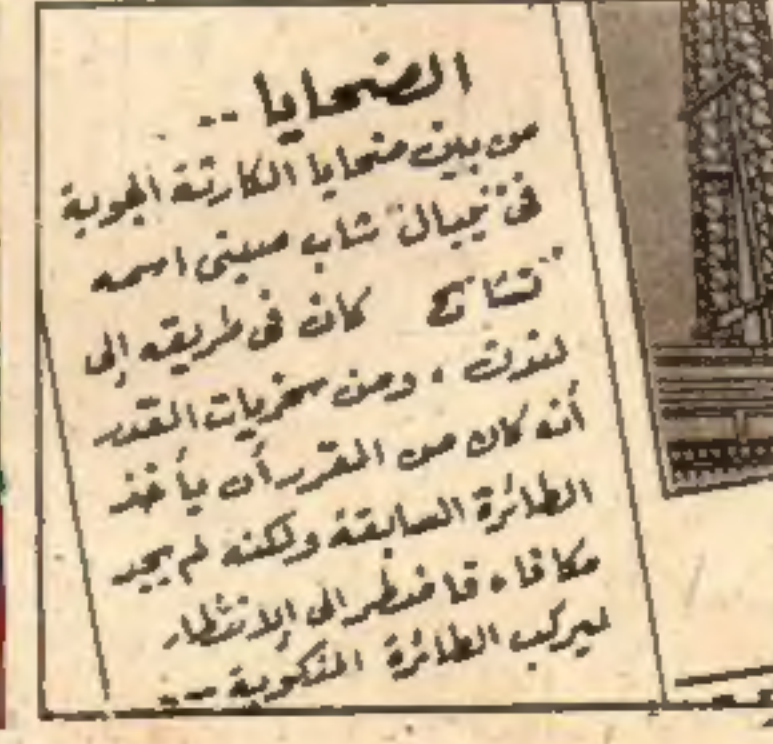 الضحايا ..
من بين ضحايا الكارثة الجوية
فى "نيبال" شاب صينى اسمه
"تشانج" كان فى طريقه إلى
لندن ، ومن سخريات القدر
أنه كان من المقرر أن يأخذ
الطائرة السابقة ولكنه لم يجد
مكانا، فاضطر الى الانتظار
ليركب الطائرة المنكوبة ...